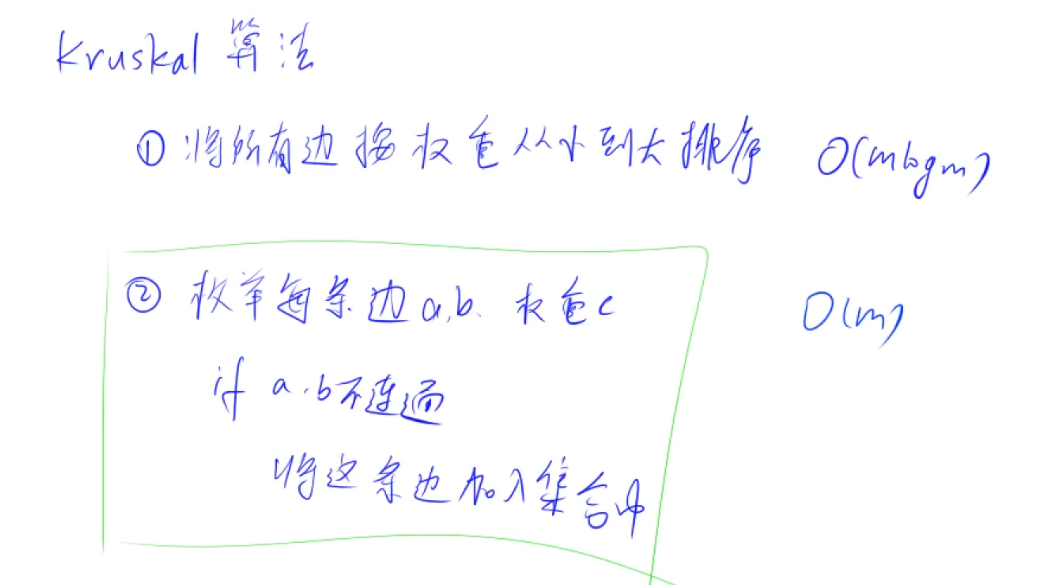 Kruskal 算法
① 将所有边按权重从小到大排序 O(mlogm)
② 枚举每条边a,b、权重c O(m)
if a,b不连通
将这条边加入集合中